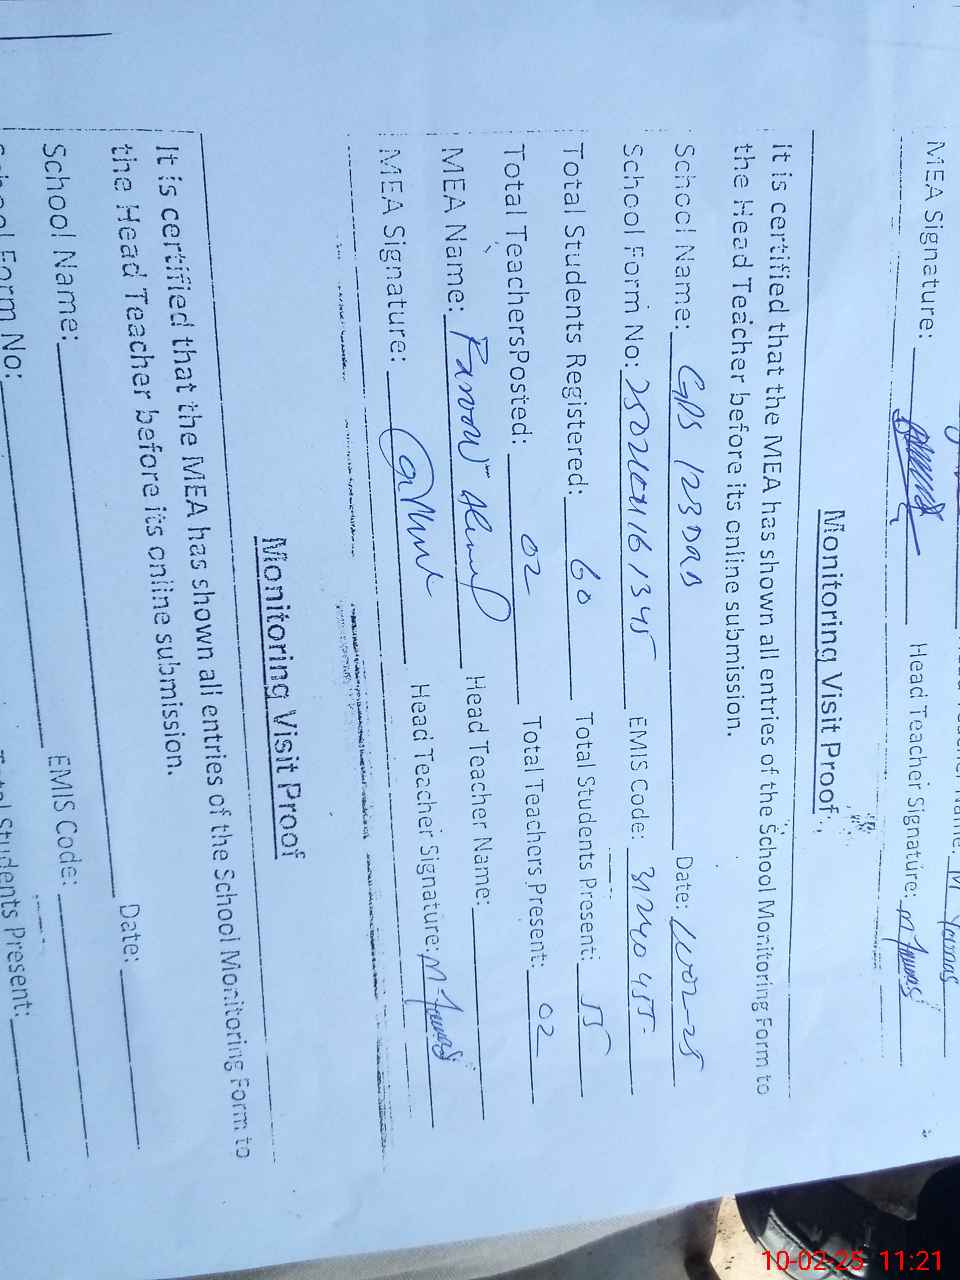 MEA Signature: Head Teacher Signature: M
Monitoring Visit Proof
It is certified that the MEA has shown all entries of the School Monitoring Form to
the Head Teacher before its online submission.
School Name: GPS 123 DAB Date:
School Form No: EMIS Code:
Total Students Registered: 60 Total Students Present: 55
Total TeachersPosted: 02 Total Teachers Present: 02
MEA Name: Head Teacher Name:
MEA Signature: Head Teacher Signature: M
Monitoring Visit Proof
It is certified that the MEA has shown all entries of the School Monitoring Form to
the Head Teacher before its online submission.
School Name: Date:
School Form No: EMIS Code:
Total Students Present:
10-02-25 11:21